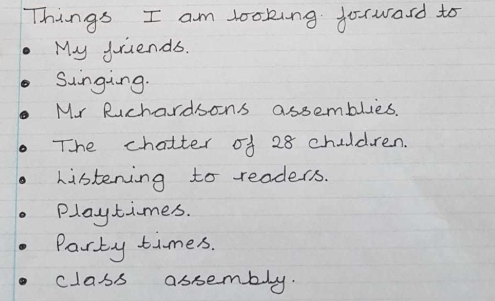 Things I am looking forward to
• My friends.
• Singing.
• Mr Richardsons assemblies.
• The chatter of 28 children.
• Listening to readers.
• Playtimes.
• Party times.
• class assembly.